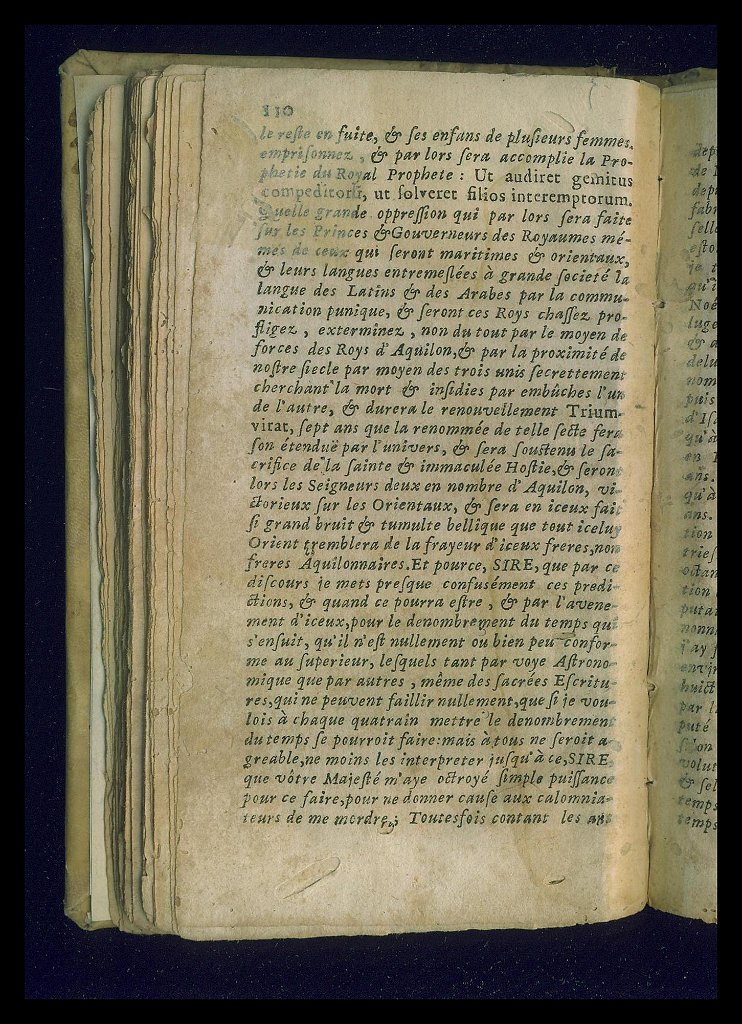 110
le reſte en fuite, & ſes enfans de pluſieurs femmes
empriſonnez, & par lors ſera accomplie la Pro-
phetie du Royal Prophete : Ut audiret gemitus
compeditorũ, ut ſolveret filios interemptorum.
Quelle grande oppreſſion qui par lors ſera faite
ſur les Princes & Gouverneurs des Royaumes mé-
mes de ceux qui ſeront maritimes & orientaux,
& leurs langues entremeſlées à grande ſocieté la
langue des Latins & des Arabes par la commu-
nication punique, & ſeront ces Roys chaſſez pro-
fligez, exterminez, non du tout par le moyen de
forces des Roys d'Aquilon, & par la proximité de
noſtre ſiecle par moyen des trois unis ſecrettement
cherchant la mort & inſidies par embûches l'un
de l'autre, & durera le renouvellement Trium-
virat, ſept ans que la renommée de telle ſecte fera
ſon étenduë par l'univers, & ſera ſouſtenu le ſa-
crifice de la ſainte & immaculée Hoſtie, & ſeront
lors les Seigneurs deux en nombre d'Aquilon, vi-
ctorieux ſur les Orientaux, & ſera en iceux fait
ſi grand bruit & tumulte bellique que tout iceluy
Orient tremblera de la frayeur d'iceux freres, non
freres Aquilonnaires. Et pource, SIRE, que par ce
diſcours je mets preſque confusément ces predi-
ctions, & quand ce pourra eſtre, & par l'avene-
ment d'iceux, pour le denombrement du temps qui
s'enſuit, qu'il n'eſt nullement ou bien peu confor-
me au ſuperieur, leſquels tant par voye Aſtrono-
mique que par autres, même des ſacrées Eſcritu-
res, qui ne peuvent faillir nullement, que ſi je vou-
lois à chaque quatrain mettre le denombrement
du temps ſe pourroit faire: mais à tous ne ſeroit a-
greable, ne moins les interpreter juſqu'à ce, SIRE
que vôtre Majeſté m'aye octroyé ſimple puiſſance
pour ce faire, pour ne donner cauſe aux calomnia-
teurs de me mordre; Toutesfois contant les ans